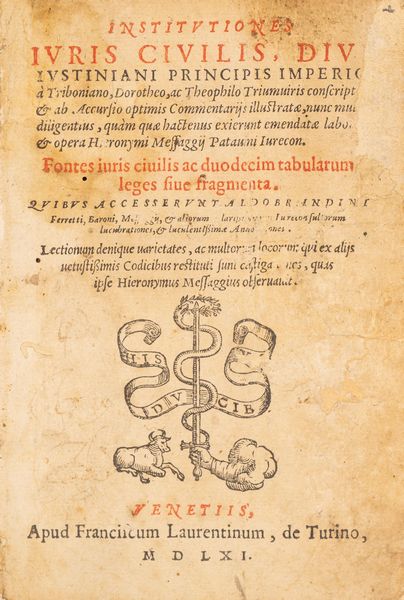 INSTITVTIONES
IVRIS CIVILIS, DIV
IVSTINIANI PRINCIPIS IMPERIO
à Triboniano, Dorotheo, ac Theophilo Triumuiris conscript
& ab Accursio optimis Commentarijs illustratæ, nunc mul
diligentius, quàm quæ hactenus exierunt emendatæ labo
& opera Hieronymi Messaggij Patauni Iurecon.
Fontes iuris ciuilis ac duodecim tabularum
leges siue fragmenta.
QVIBVS ACCESSERVNT ALDOBRANDINI
Ferretti, Baroni, & aliorum Iureconsultorum
lucubrationes, & luculentissimæ
Lectionum denique uarietates, ac multorum locorum qui ex alijs
uetustissimis Codicibus restituti sunt quas
ipse Hieronymus Messaggius obseruauit.
HIS
DV CIB
VENETIIS,
Apud Franciscum Laurentinum, de Turino,
MDLXI.